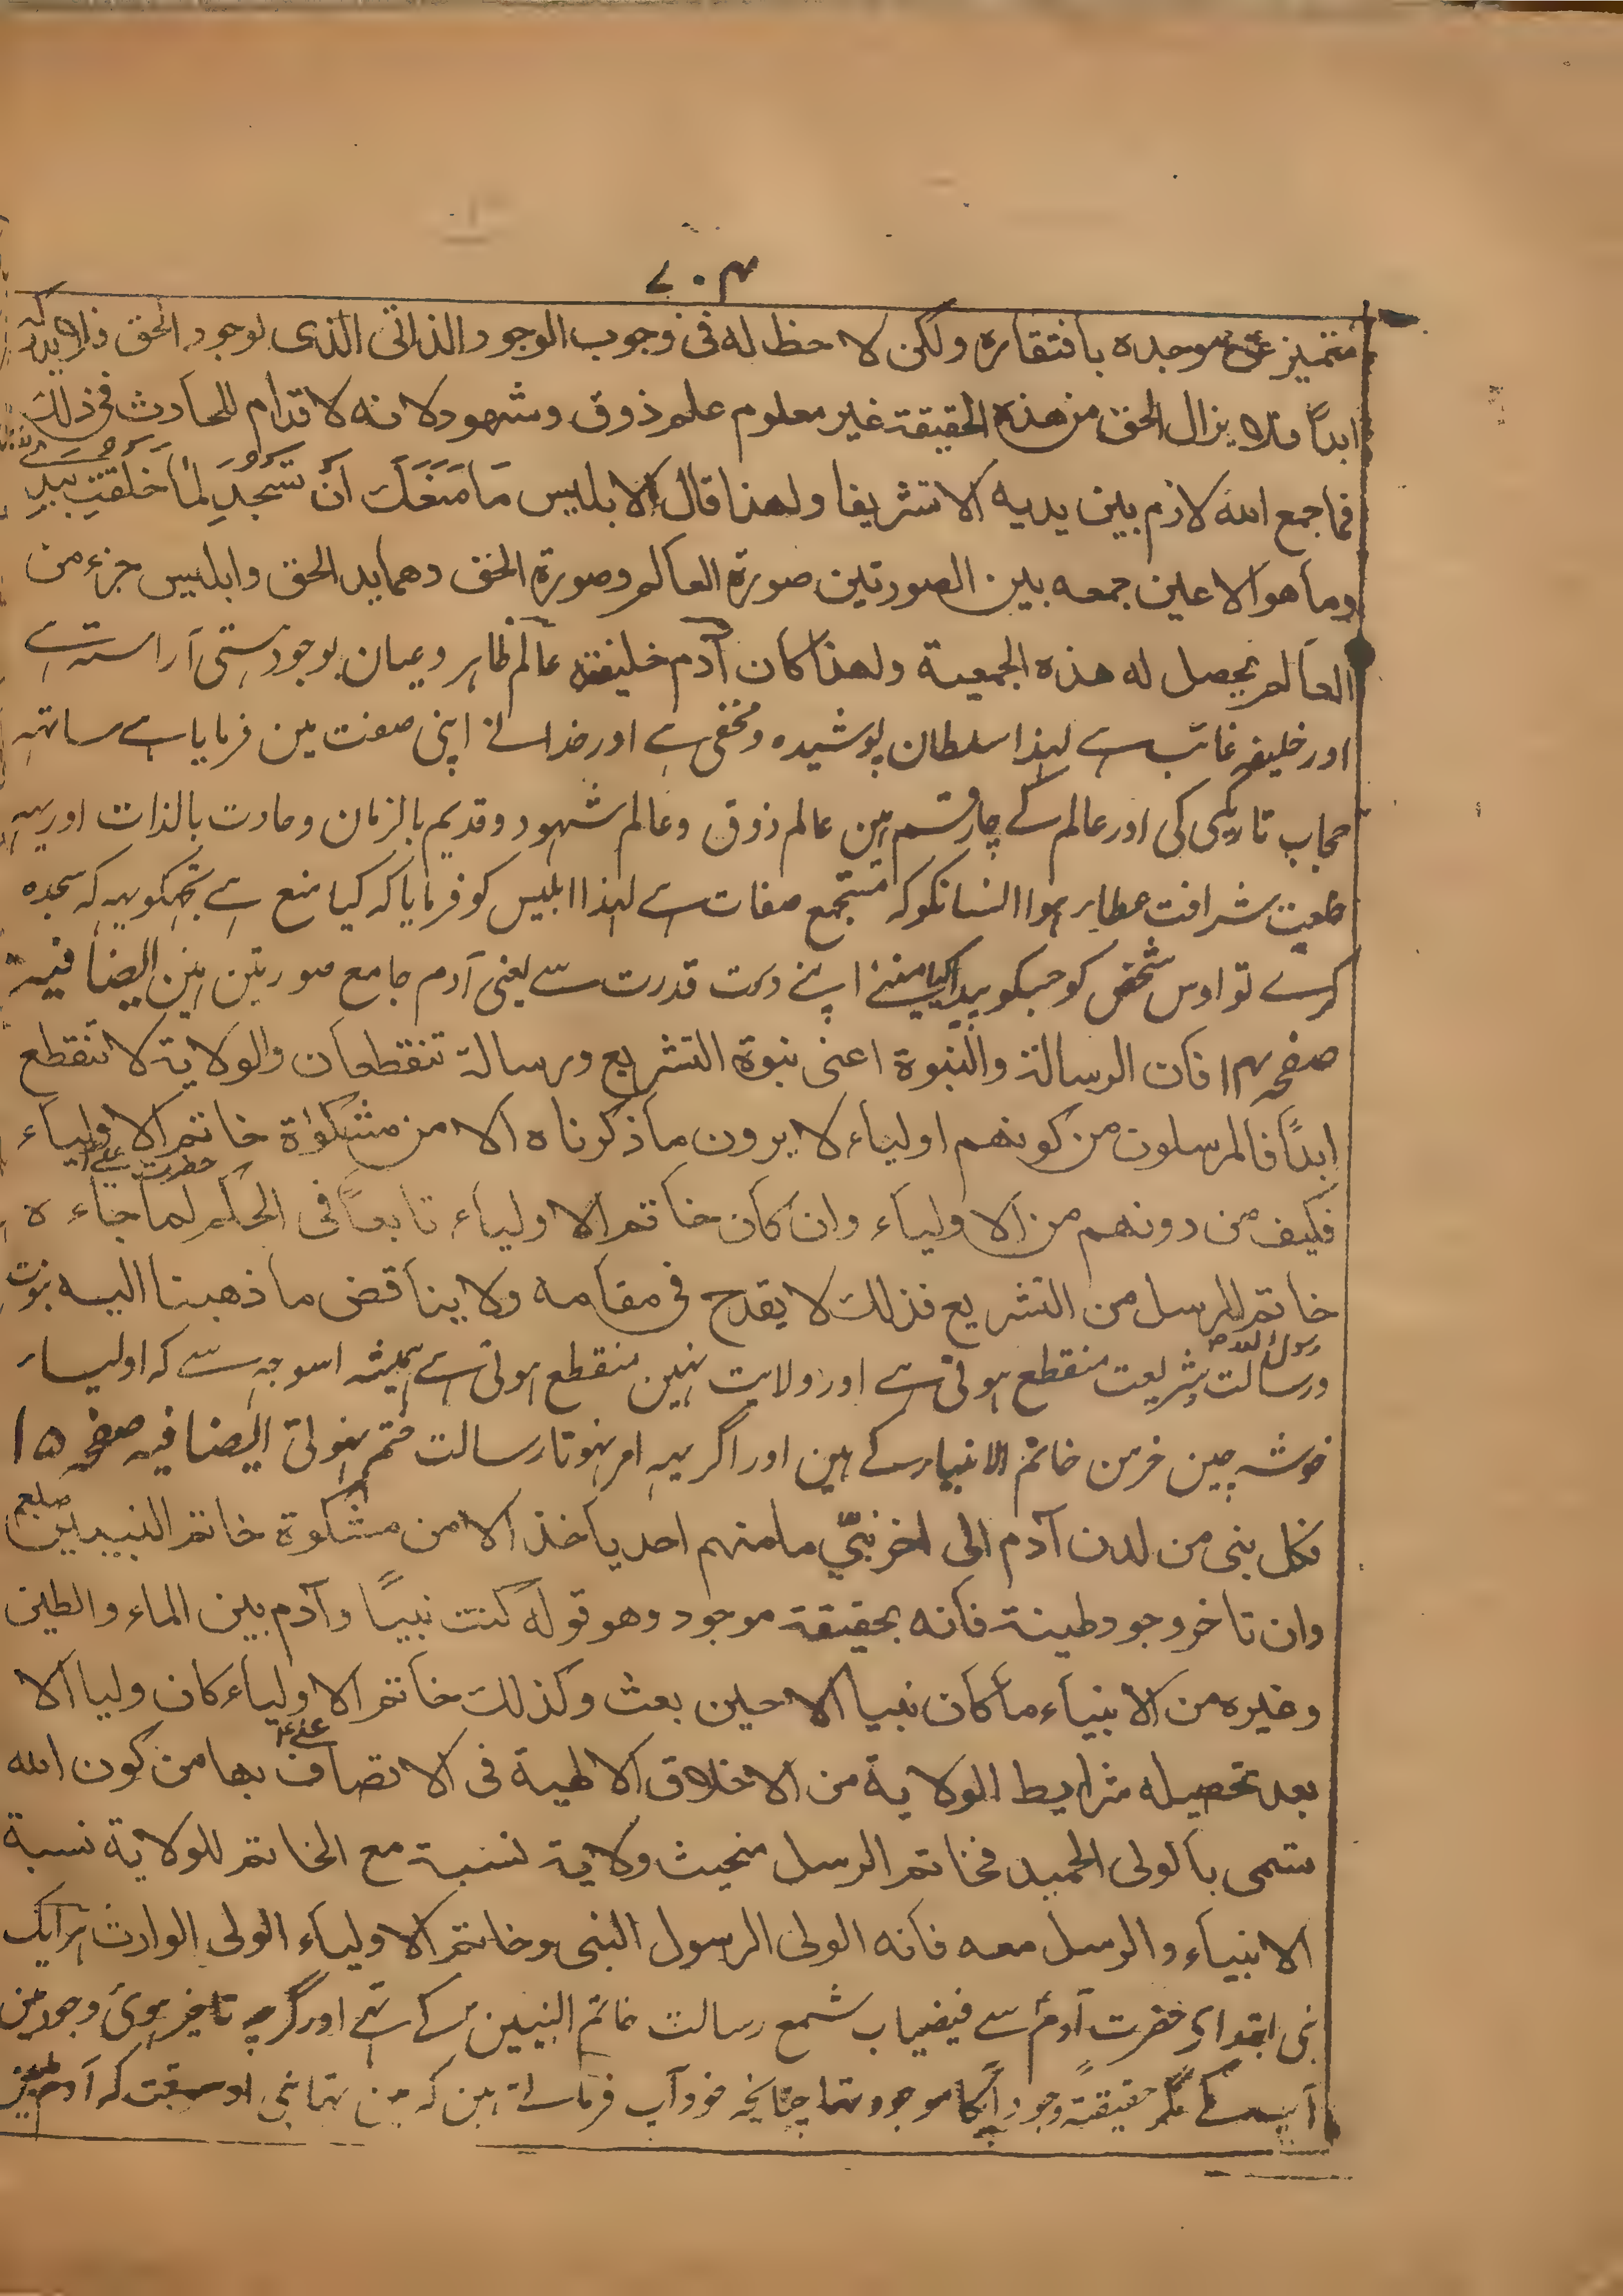 ۷۰۴
متمیز عن موجدہ بافتقارہ ولکن لا حظ لہ فی وجوب الوجود الذاتی الذی لوجود الحق فلا یدرکہ
ابداً فلا یزال الحق من ھذہ الحقیقۃ غیر معلوم علم ذوق وشھود لانہ لا قدام للحادث فی ذلک
فما جمع اللہ لادم بین یدیہ الا تشریفا ولھذا قال لابلیس مَا مَنَعَكَ اَنْ تَسْجُدَ لِمَا خَلَقْتُ بِیَدَیَّ
وما ھو الا عین جمعہ بین الصورتین صورۃ العالم وصورۃ الحق وھما ید الحق وابلیس جزء من
العالم یحصل لہ ھذہ الجمعیۃ ولھذا کان آدم خلیفۃ عالم ظاہر وعیان بوجود ہستی آراستہ ہے
اور خلیفہ غائب ہے لہذا سلطان پوشیدہ ومخفی ہے اور خدا نے اپنی صفت مین فرمایا ہے ساتہہ
حجاب تاریکی کی اور عالم کے چار قسم ہین عالم ذوق وعالم شہود وقدیم بالزمان وحادث بالذات اور یہہ
خلعت شرافت عطا ہوا انسانکو کہ مستجمع صفات ہے لہذا ابلیس کو فرمایا کہ کیا منع ہے تجہکو یہہ کہ سجدہ
کرے تو اوس شخص کو جسکو پیدا کیا مینے اپنے دست قدرت سے یعنی آدم جامع صورتین ہین ایضا فیہ
صفحہ ۱۴ فان الرسالۃ والنبوۃ اعنی نبوۃ التشریع ورسالۃ تنقطعان والولایۃ لا تنقطع
ابداً فالمرسلون من کونھم اولیاء لا یرون ما ذکرناہ الا من مشکواۃ خاتم الاولیاء
حضرت علی
فکیف من دونھم من الاولیاء وان کان خاتم الاولیاء تابعاً فی الحکم لما جاء ہ
خاتم الرسل من التشریع فذلک لا یقدح فی مقامہ ولا یناقض ما ذھبنا الیہ نبوت
رسول اللہ
ورسالت شریعت منقطع ہوتی ہے اور ولایت نہین منقطع ہوتی ہے ہمیشہ اسوجہ سے کہ اولیاء
خوشہ چین خرمن خاتم الانبیاء کے ہین اور اگر یہہ امر نہوتا رسالت ختم نہوتی ایضا فیہ صفحہ ۱۵
فکل نبی من لدن آدم الی اخر نبیّ ما منہم احد یاخذ الا من مشکوۃ خاتم النبیین صلعم
وان تاخر وجود طینۃ فانہ بحقیقۃ موجود وھو قولہ کنت نبیّاً وآدم بین الماء والطین
وغیرہ من الانبیاء ما کان نبیا الا حین بعث وکذلک خاتم الاولیاء کان ولیا الا
بعد تحصیلہ شرایط الولایۃ من الاخلاق الالھیۃ فی الاتصاف بھا من کون اللہ
سمی بالولی الحمید فخاتم الرسل منحیث ولایۃ نسبۃ مع الخاتم للولایۃ نسبۃ
الانبیاء والرسل معہ فانہ الولی الرسول النبی وخاتم الاولیاء الولی الوارث ہر ایک
نبی ابتدای حضرت آدم سے فیضیاب شمع رسالت خاتم النبیین کے تہے اور گرچہ تاخیر ہوئی وجود مین
آپ کے مگر حقیقتہ وجود آپکا موجود تہا چنانچہ خود آپ فرماتے ہین کہ مین تہا نبی اوسوقت کہ آدم